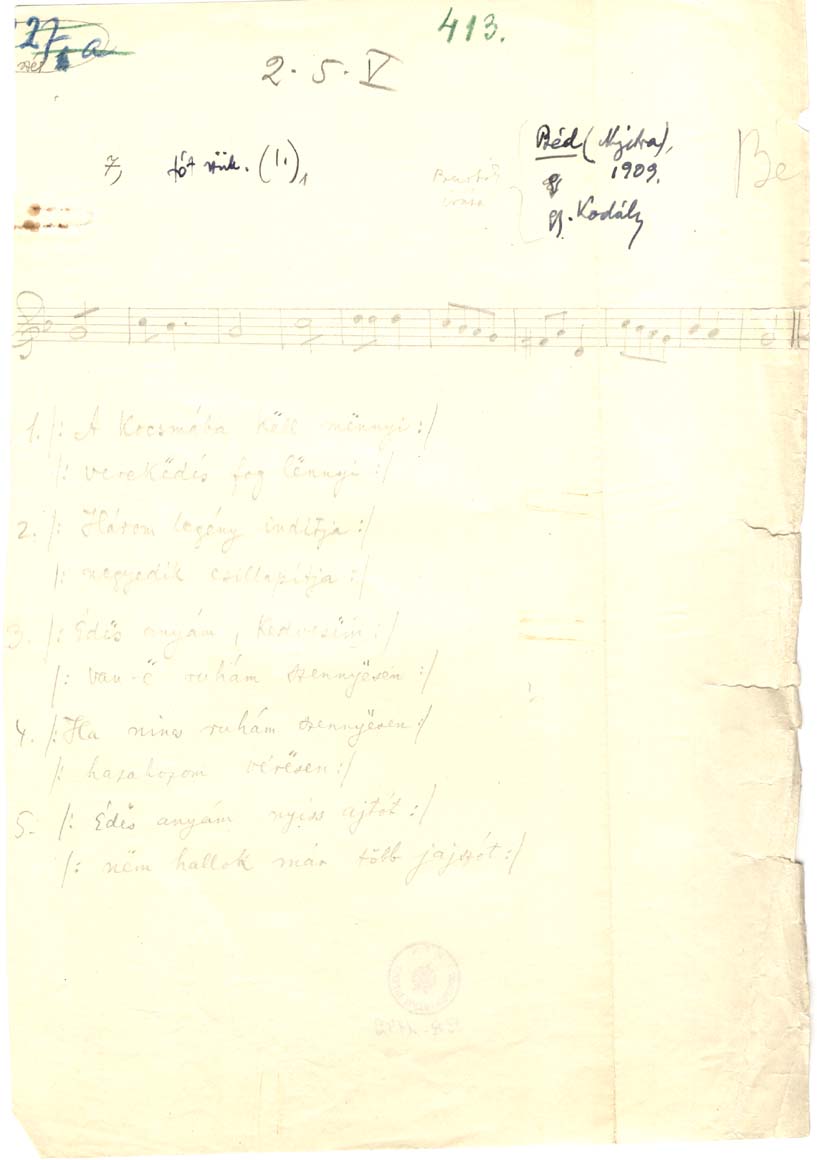 27 a
413.
2. 5. V
7,
tót
Béd (Nyitra),
1909.
gy. Kodály
Bé
1. /: A Kocsmába këll mënnyi :/
/: verekëdís fog lënnyi :/
2. /: Három legény indítja :/
/: negyedik csillapítja :/
3. /: Édës anyám, Kedvesëm :/
/: van-ë ruhám szennyësen :/
4. /: Ha nincs ruhám szennyësen :/
/: hazahozom vérësen :/
5. /: Édës anyám nyiss ajtót :/
/: nëm hallok már több jajszót :/